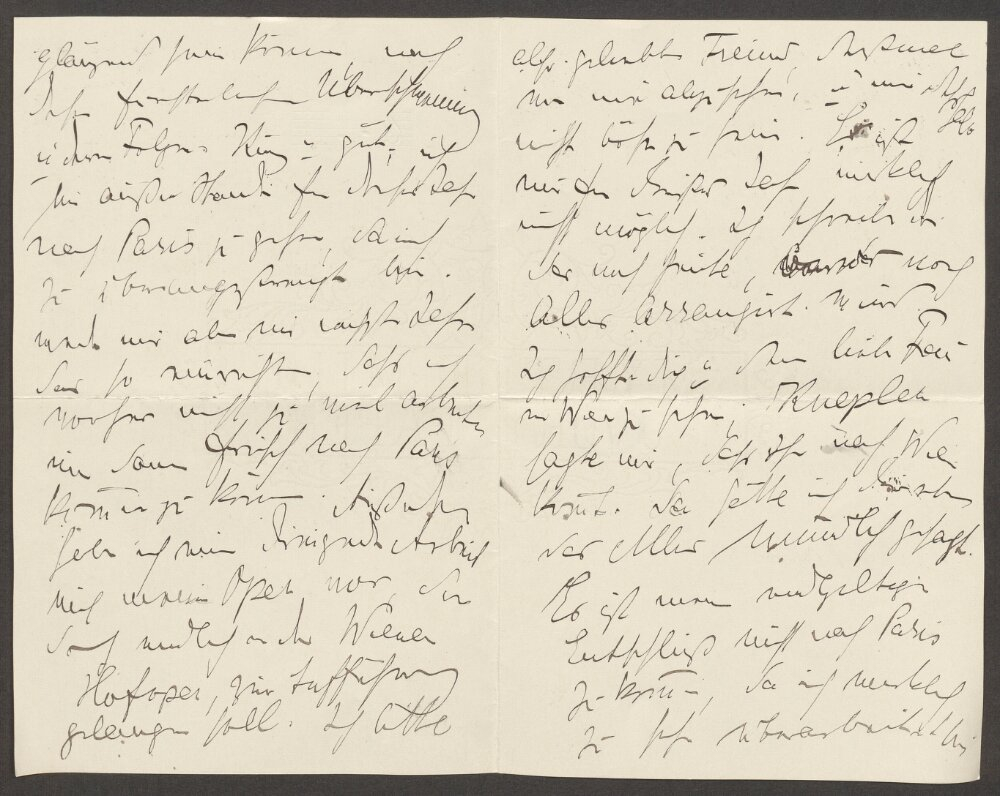 glänzend sein können, nach
dieser fürchterlichen Überschwemmung
u deren Folgen. Kurz u gut, ich
bin außer Stande für diese Zeit
nach Paris zu gehen, da ich
zu überangestrengt bin.
mich aber
so daß ich
vorher nicht zu viel arbeite
um dann frisch nach Paris
kommen zu können. Außerdem
habe ich eine dringende Arbeit
mit meiner Oper vor, die
doch endlich in der Wiener
Hofoper zur Aufführung
gelangen soll. Ich bitte
also geliebter Freund, diesmal
von mir abzusehen, u mir
nicht böse zu sein. Es ist
mir für diese Zeit wirklich
nicht möglich. Ich schreibe dir
das noch heute, noch
Alles arrangirt wird.
Ich hoffe dich u deine liebe Frau
in Wien zu sehen, Knepler
sagte mir, daß Ihr nach Wien
kommt. Da hätte ich
das Alles mündlich gesagt.
Es ist mein endgiltiger
Entschluß nicht nach Paris
zu kommen, da ich wirklich
zu sehr überarbeitet bin